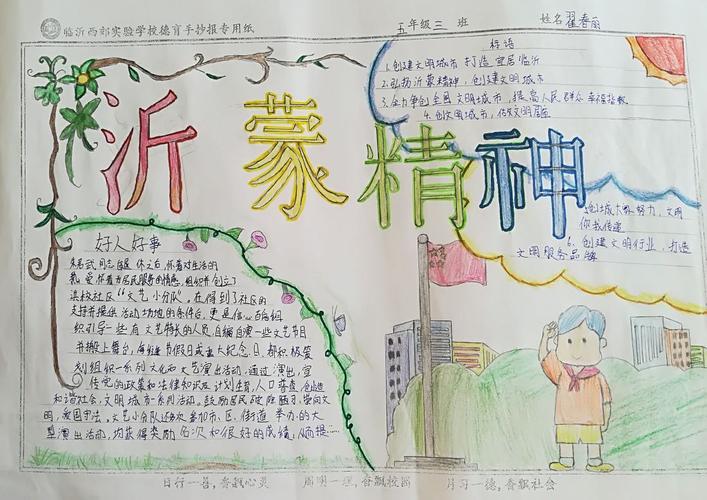 临沂西郊实验学校德育手抄报专用纸 五年级三 班 姓名翟春丽
沂蒙精神
标语
1.创建文明城市 打造宜居临沂
2.弘扬沂蒙精神,创建文明城市
3.全力争创全国文明城市,提高人民群众幸福指数
4.创文明城市,做文明居民
5.创城大家努力,文明
你我传递
6.创建文明行业,打造
文明服务品牌
好人好事
同志退休之后,怀着对生活的
热爱,怀着为居民服务的情感,组织并创立了
滨校社区“文艺小分队”。在得到了社区的
支持并提供活动场地的条件后,更是信心百倍组
织引导一些有文艺特长的人员,自编自演一些文艺节目
并搬上舞台,每缝节假日或重大纪念日,都积极筹
划组织一系列文化和文艺演出活动,通过演出,宣
传党的政策和法律知识及计划生育,人口普查,创造
和谐社会,文明城市系列活动。鼓励居民破陋习,学向文
明,爱国守法。文艺小分队还多次参加市、区、街道举办的大
型演出活动,均获得奖励名次和很好的成绩,
日行一善,香飘心灵 周明一理,香飘校园 月习一德,香飘社会